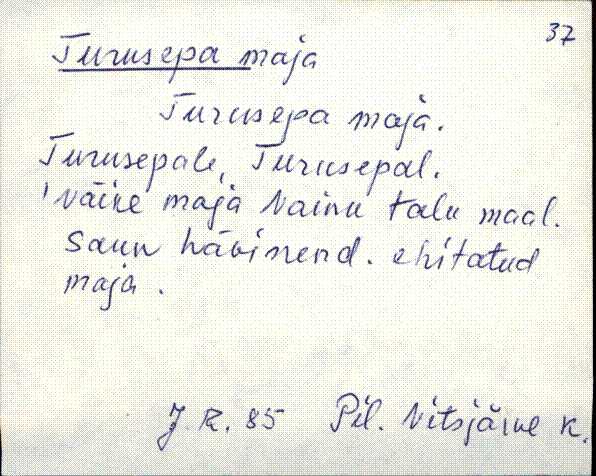 37
Turusepa maja
Turusepa maja.
Turusepale, Turusepal.
'väike maja Vainu talu maal.
Saun hävinend. ehitatud
maja.
J. R. 85 Pil. Vitsjärve k.